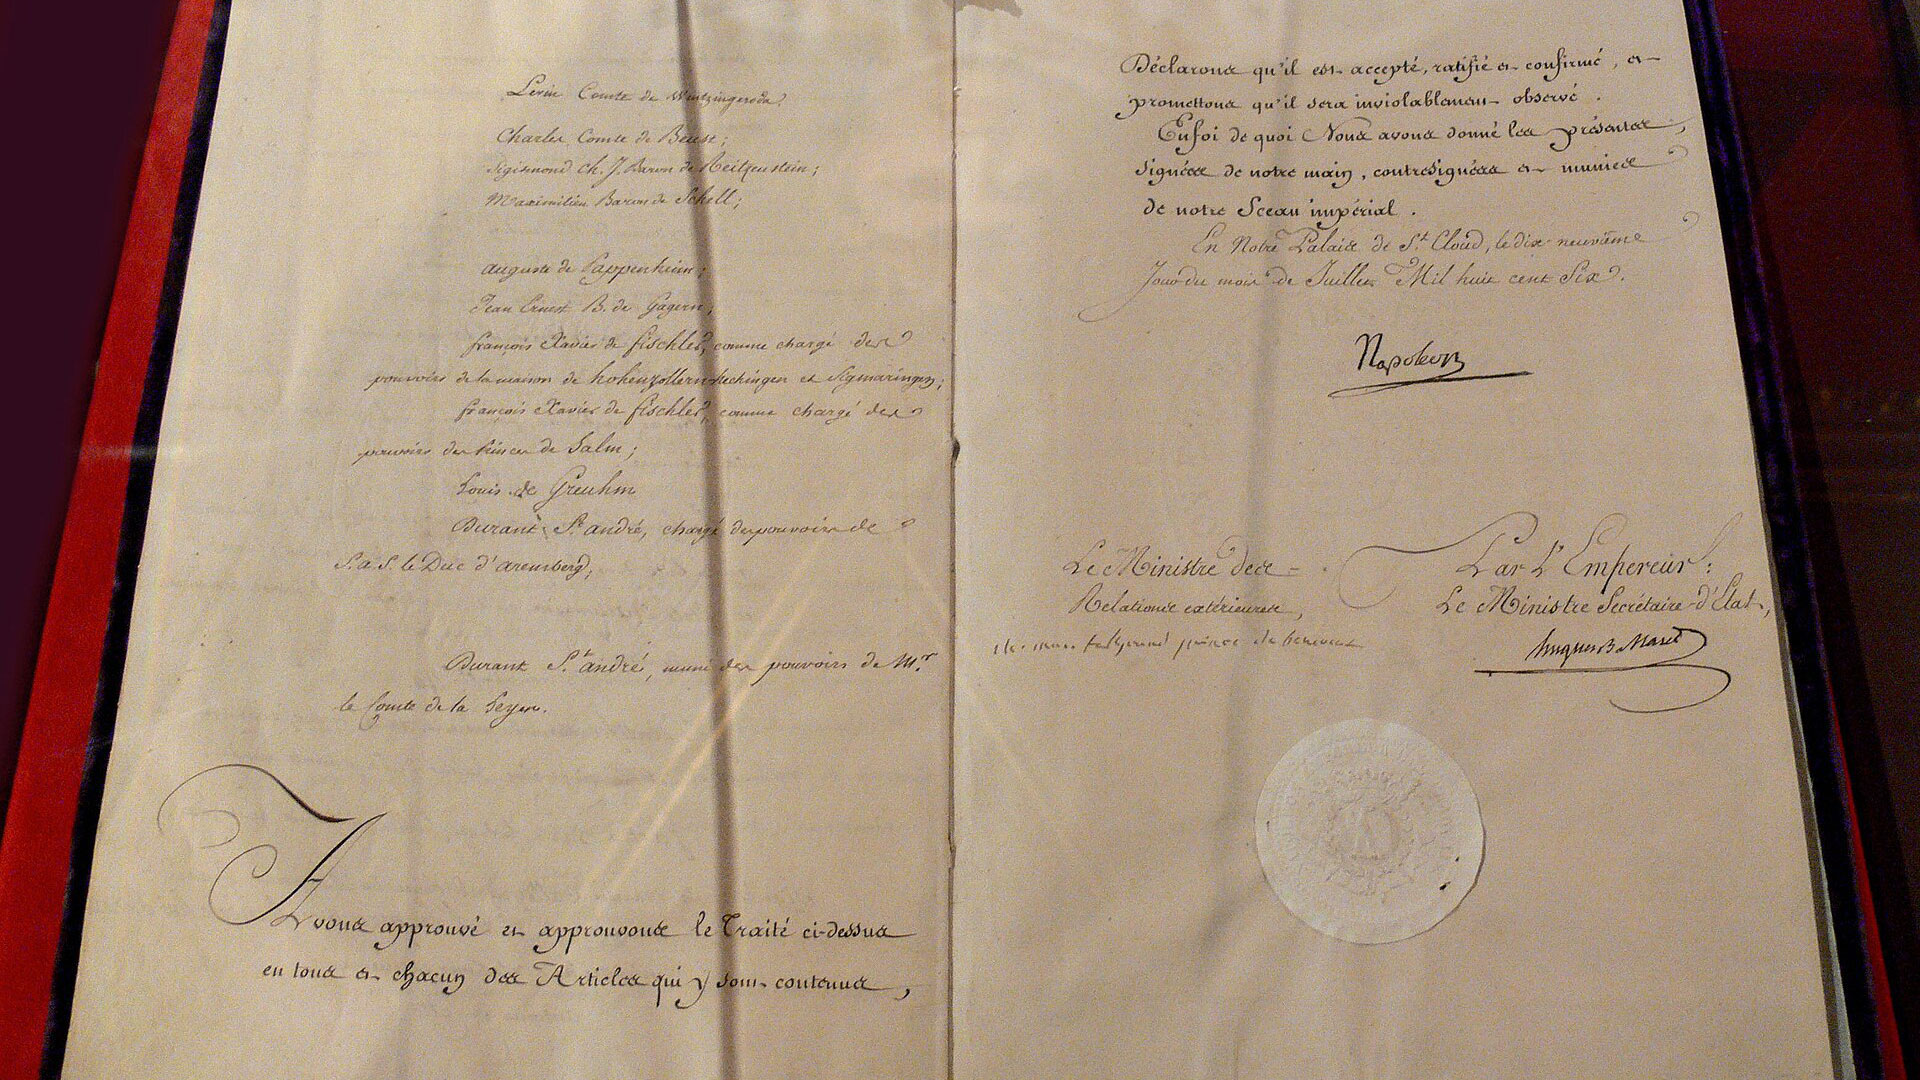 Levin Comte de Wintzingeroda?
Charles Comte de Beust;
Sigismond Ch. J. Baron de Reitzenstein;
Maximilien Baron de Schell;
Auguste de Pappenheim;
Jean Ernest B. de Gagern;
françois Xavier de fischler, comme chargé des
pouvoirs de la maison de hohenzollern-hechingen et Sigmaringen;
françois Xavier de fischler, comme chargé des
pouvoirs des Princes de Salm;
Louis de Greuhm
Durant St. andré, chargé des pouvoirs de
S. a. S. le Duc d'aremberg;
Durant St. andré, muni des pouvoirs de Mr.
le Comte de la Leyen.
Avons approuvé et approuvons le Traité ci-dessus
en tous et chacun des Articles qui y sont contenus,
Déclarons qu'il est accepté, ratifié et confirmé, et
promettons qu'il sera inviolablement observé.
En foi de quoi Nous avons donné les présentes,
signées de notre main, contresignées et munies
de notre Sceau impérial.
En Notre Palais de St. Cloud, le dix-neuvième
Jour du mois de Juillet Mil huit cent Six.
Napoleon
Le Ministre des
Relations extérieures,
ch. mau. talleyrand prince de benevent
Par l'Empereur:
Le Ministre Secrétaire d'Etat,
hugues B. Maret